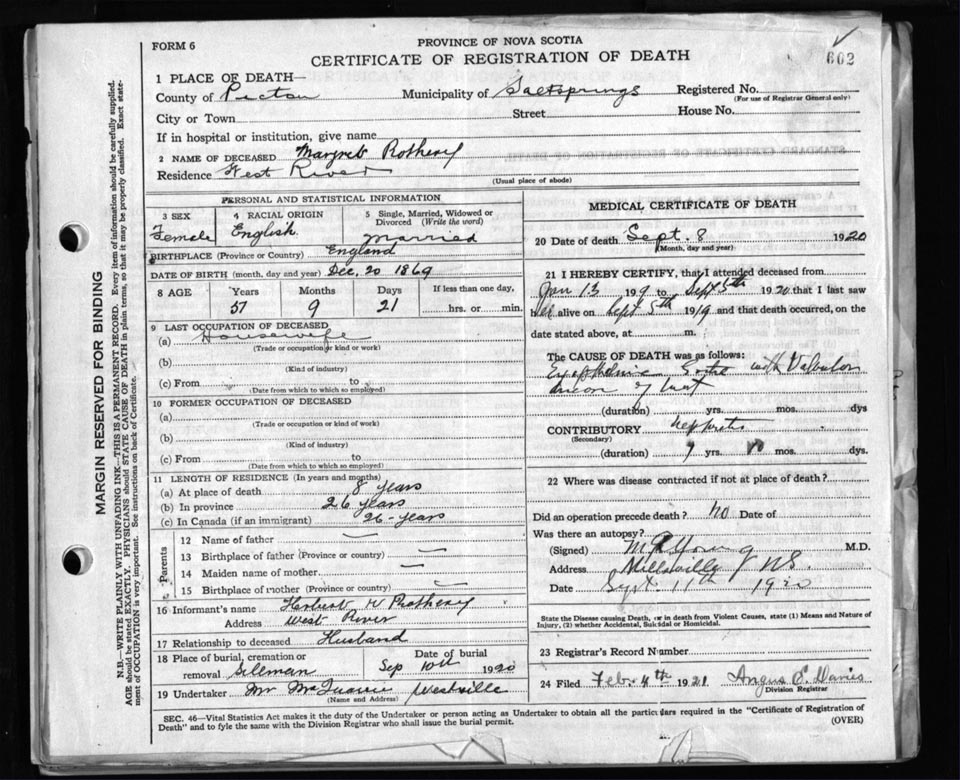 FORM 6
PROVINCE OF NOVA SCOTIA
CERTIFICATE OF REGISTRATION OF DEATH
602
1 PLACE OF DEATH—
County of Pictou Municipality of Saltsprings Registered No.
(For use of Registrar General only)
City or Town Street House No.
If in hospital or institution, give name
2 NAME OF DECEASED Margret Rothery
Residence West River
(Usual place of abode)
PERSONAL AND STATISTICAL INFORMATION
3 SEX Female
4 RACIAL ORIGIN English
5 Single, Married, Widowed or Divorced (Write the word) Married
BIRTHPLACE (Province or Country) England
DATE OF BIRTH (month, day and year) Dec, 20 1869
8 AGE Years Months Days If less than one day,
57 9 21 hrs. or min.
9 LAST OCCUPATION OF DECEASED
(a) Housewife
(Trade or occupation or kind or work)
(b)
(Kind of industry)
(c) From to
(Date from which to which so employed)
10 FORMER OCCUPATION OF DECEASED
(a)
(Trade or occupation or kind or work)
(b)
(Kind of industry)
(c) From to
(Date from which to which so employed)
11 LENGTH OF RESIDENCE (In years and months)
(a) At place of death 8 years
(b) In province 26 years
(c) In Canada (if an immigrant) 26 years
Parents
12 Name of father —
13 Birthplace of father (Province or country) —
14 Maiden name of mother —
15 Birthplace of mother (Province or country) —
16 Informant's name Herbert W Rothery
Address West River
17 Relationship to deceased Husband
18 Place of burial, cremation or removal Date of burial Sep 10th 1920
19 Undertaker Mr Westville
(Name and Address)
MEDICAL CERTIFICATE OF DEATH
20 Date of death Sept. 8 1920
(Month, day and year)
21 I HEREBY CERTIFY, that I attended deceased from
Jan 13 19 9 to Sept 5th 1920 that I last saw
her alive on Sept 5th 1919 and that death occurred, on the
date stated above, at m.
The CAUSE OF DEATH was as follows:
with
(duration) yrs. mos. dys
CONTRIBUTORY
(Secondary)
(duration) yrs. mos. dys.
22 Where was disease contracted if not at place of death?
Did an operation precede death? No Date of
Was there an autopsy?
(Signed) Young M.D.
Address Millsville NS.
Date Sept. 11th 1920
State the Disease causing Death, or in death from Violent Causes, state (1) Means and Nature of
Injury, (2) whether Accidental, Suicidal or Homicidal.
23 Registrar's Record Number
24 Filed Feb. 4th 1921 Angus E. Davis
Division Registrar
SEC. 46—Vital Statistics Act makes it the duty of the Undertaker or person acting as Undertaker to obtain all the particulars required in the "Certificate of Registration of
Death" and to fyle the same with the Division Registrar who shall issue the burial permit.
(OVER)
MARGIN RESERVED FOR BINDING
N.B.—WRITE PLAINLY WITH UNFADING INK—THIS IS A PERMANENT RECORD. Every item of information should be carefully supplied.
AGE should be stated EXACTLY. PHYSICIANS should STATE CAUSE OF DEATH in plain terms, so that it may be properly classified. Exact state-
ment of OCCUPATION is very important. See instructions on back of Certificate.